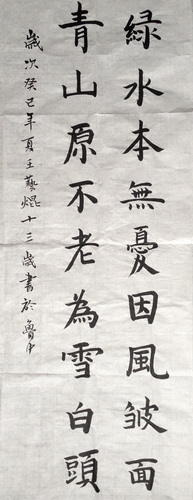 綠水本無憂因風皱面
青山原不老為雪白頭
歲次癸巳年夏王藝焜十三歲書於魯中